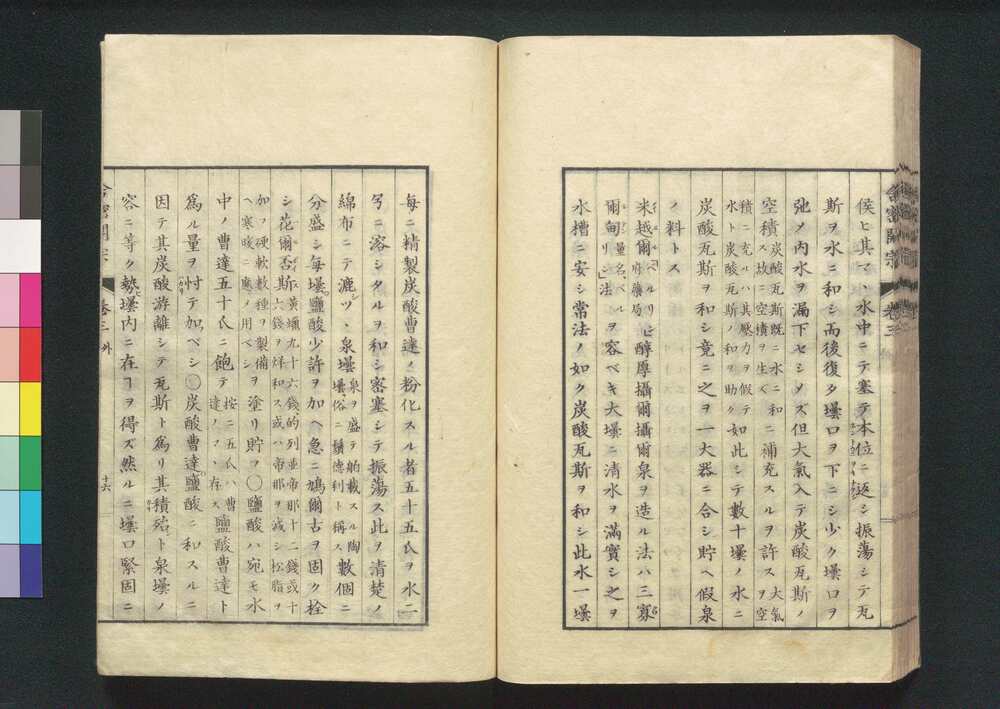 俟ヒ其マヽ水中ニテ塞テ本位ニ返シ振蕩シテ瓦
斯ヲ水ニ和シ而後復タ壜口ヲ下ニシ少ク壜口ヲ
弛メ内水ヲ漏下セシメズ但大氣入テ炭酸瓦斯ノ
空積ス故ニ空積ヲ生ズ
炭酸瓦斯既ニ水ニ和
ニ補充スルヲ許ス
大氣ヲ空
積ニ充ルハ其壓力ヲ假テ
水ト炭酸瓦斯ノ和ヲ助ク
如此シテ數十壜ノ水ニ
炭酸瓦斯ヲ和シ竟ニ之ヲ一大器ニ合シ貯ヘ假泉
ノ料トス
米越爾ベルリヒ府藥局醇厚攝爾攝爾泉ヲ造ル法ハ三寡
爾甸量名、ベルリン法ヲ容ベキ大壜ニ清水ヲ滿實シ之ヲ
水槽ニ安シ常法ノ如ク炭酸瓦斯ヲ和シ此水一壜
舎密開宗 卷三
每ニ精製炭酸曹達ノ粉化スル者五十五氏ヲ水二
弓ニ溶シタルヲ和シ密塞シテ振蕩ス此ヲ清楚ノ
綿布ニテ漉ツヽ泉壜
泉ヲ盛テ舶載スル陶
壜、俗ニ鬚德利ト稱ス
數個ニ
分盛シ每壜鹽酸少許ヲ加ヘ急ニ鳩爾古ヲ固ク栓
シ花爾否斯
黃蠟九十六錢、的列並帝那十二錢或十
六錢ヲ烊和ス或ハ帝那ヲ減シ松脂ヲ
加フ硬軟數種ヲ製備
ヘ寒暖ニ應メ用ベシ
ヲ塗リ貯フ○鹽酸ハ宛モ水
中ノ曹達五十氏ニ飽テ
按ニ五氏ハ曹
達ノマヽ存ス
鹽酸曹達ト
爲ル量ヲ忖テ加ベシ○炭酸曹達鹽酸ニ和スルニ
因テ其炭酸游離シテ瓦斯ト爲リ其積殆ト泉壜ノ
容ニ等ク勢壜内ニ在ヿヲ得ズ然ルニ壜口緊固ニ
舎密開宗 卷三 外
十六